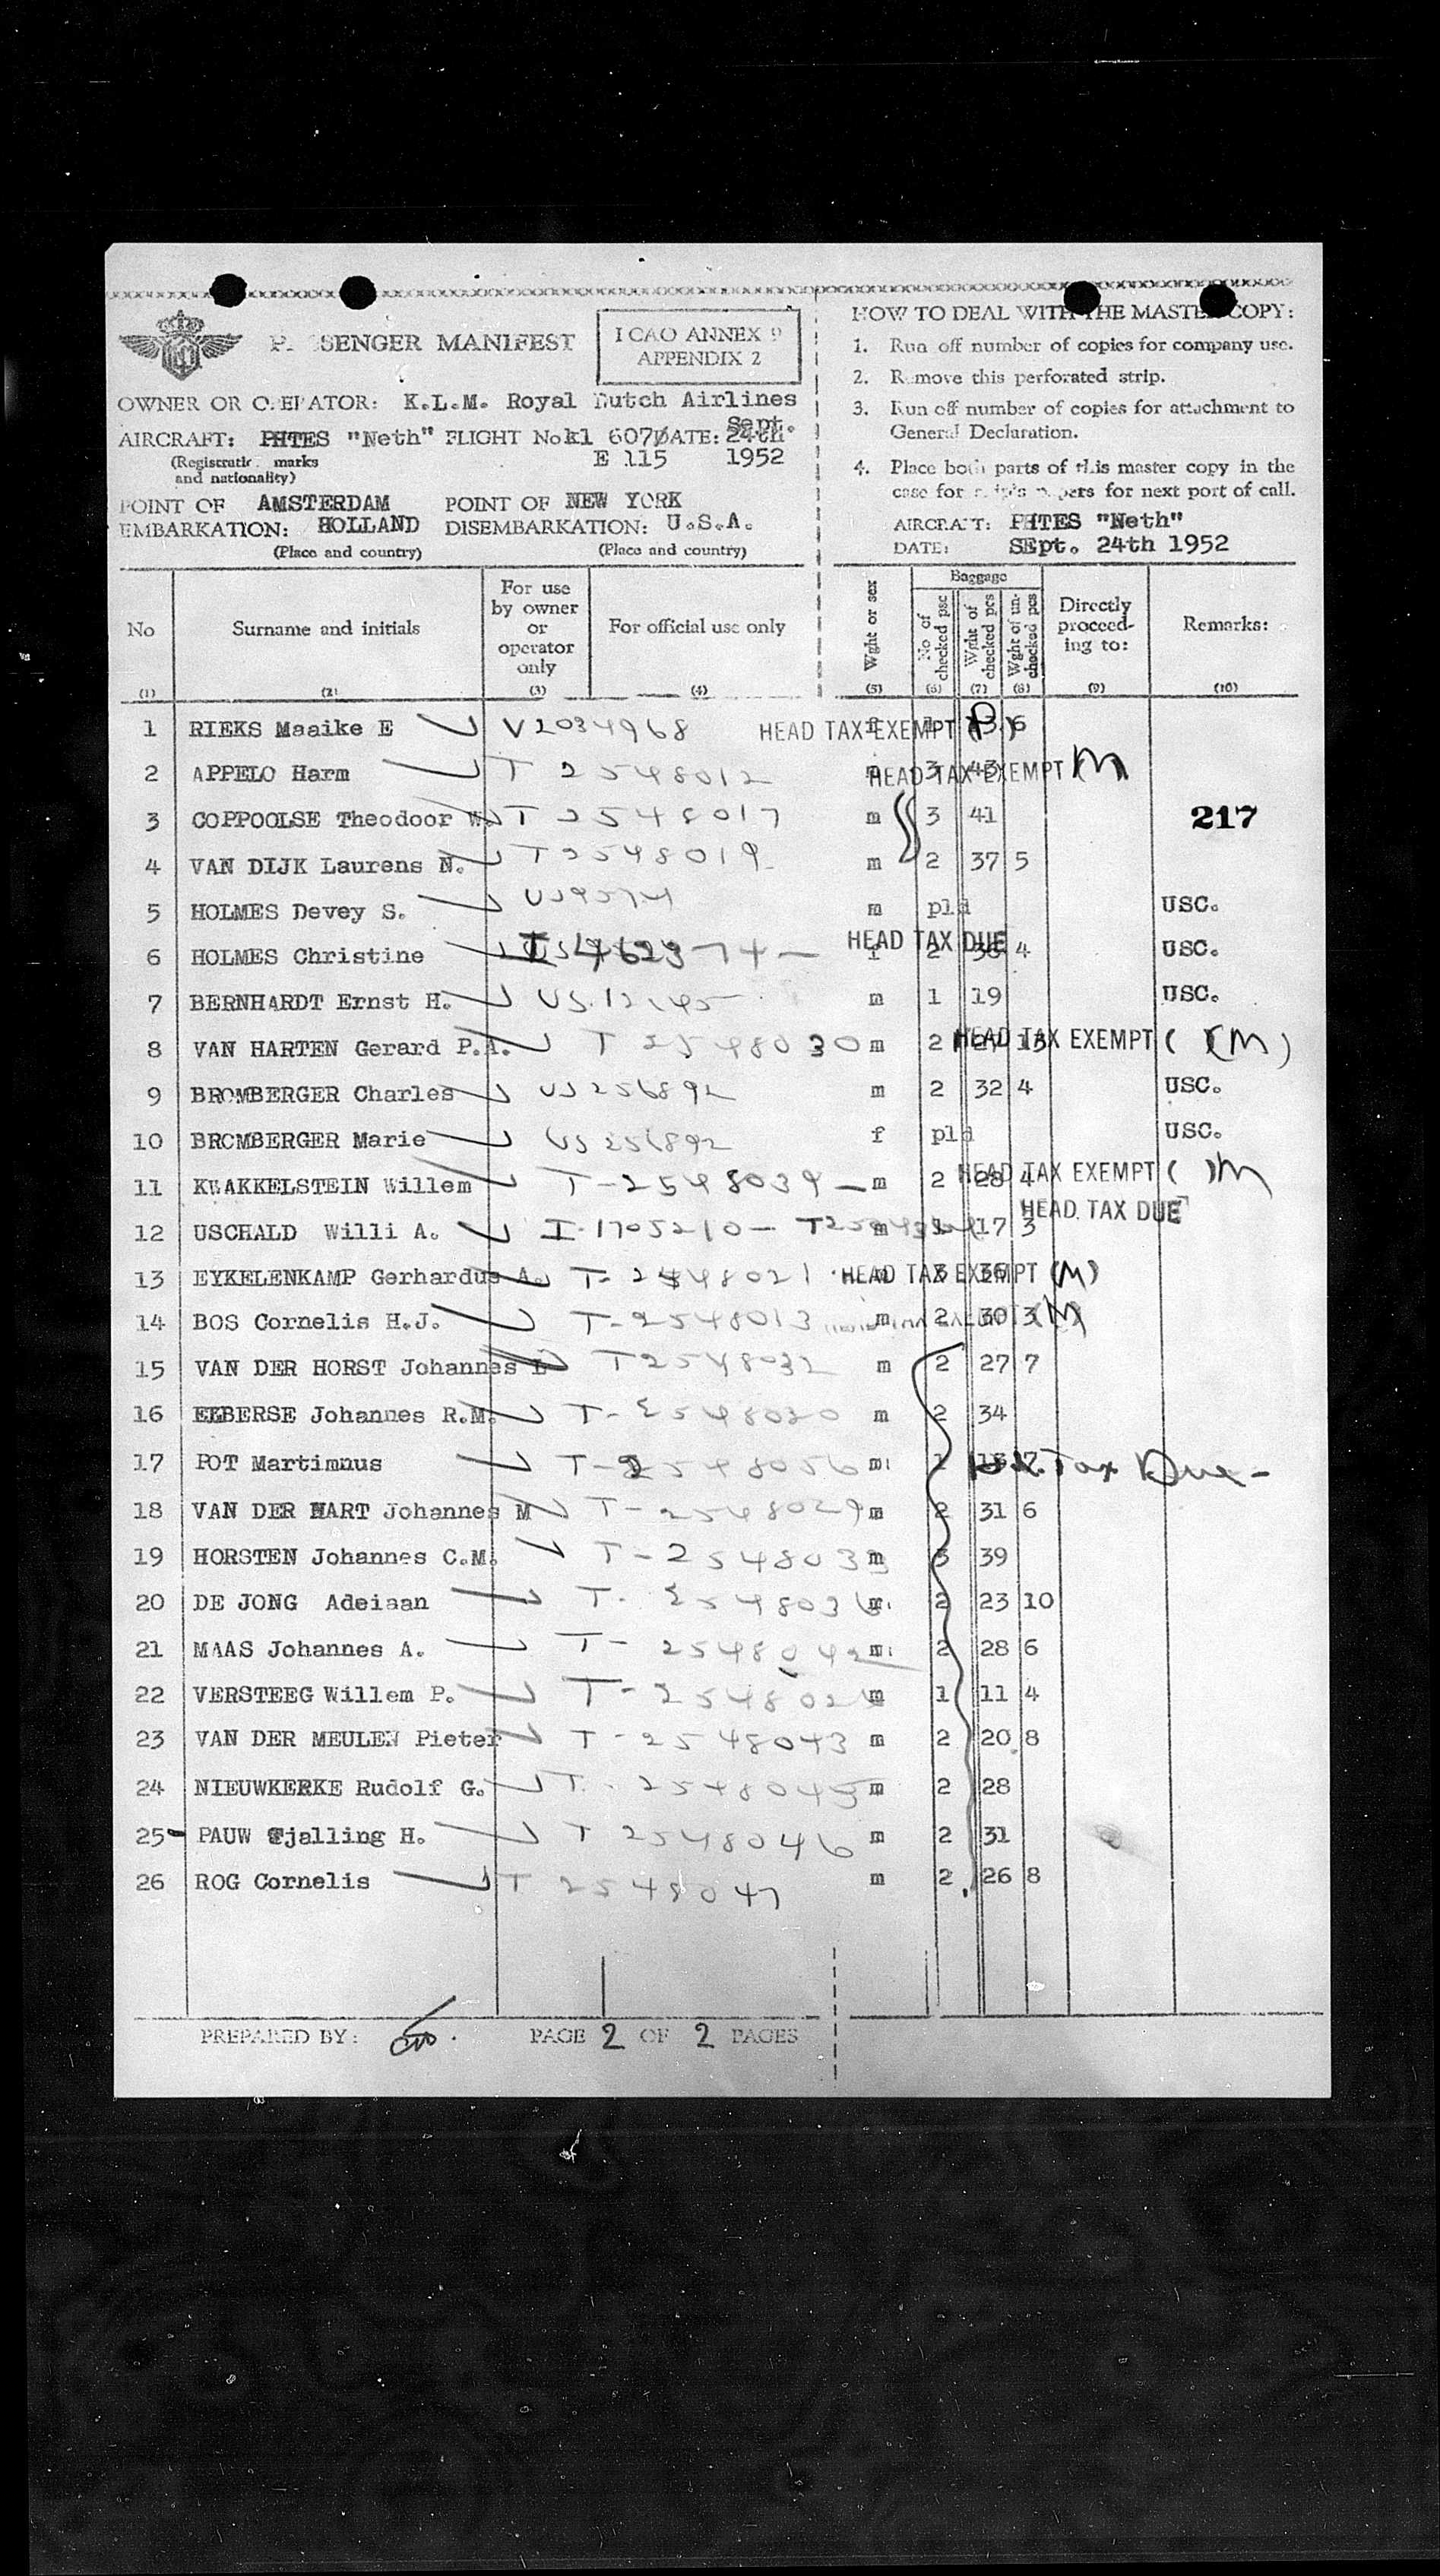 PASSENGER MANIFEST
ICAO ANNEX 9
APPENDIX 2
OWNER OR OPERATOR: K.L.M. Royal Dutch Airlines
AIRCRAFT: PHTES "Neth" FLIGHT No kl 607/ DATE: Sept. 24th
(Registratic. marks and nationality) E 115 1952
POINT OF EMBARKATION: AMSTERDAM HOLLAND POINT OF DISEMBARKATION: NEW YORK U.S.A.
(Place and country) (Place and country)
HOW TO DEAL WITH THE MASTER COPY:
1. Run off number of copies for company use.
2. Remove this perforated strip.
3. Run off number of copies for attachment to
General Declaration.
4. Place both parts of this master copy in the
case for ship's papers for next port of call.
AIRCRAFT: PHTES "Neth"
DATE: SEpt. 24th 1952
No Surname and initials For use by owner or operator only For official use only Wght or sex Baggage No of checked psc Wght of checked pcs Wght of un-checked pcs Directly proceed-ing to: Remarks:
(1) (2) (3) (4) (5) (6) (7) (8) (9) (10)
1 RIEKS Maaike E V2034968 HEAD TAX EXEMPT (P) 6
2 APPELO Harm T 2548012 3 43 HEAD TAX EXEMPT (M)
3 COPPOOLSE Theodoor W. T 2548017 m 3 41 217
4 VAN DIJK Laurens N. T2548019 m 2 37 5
5 HOLMES Devey S. m pld USC.
6 HOLMES Christine f 2 4 HEAD TAX DUE USC.
7 BERNHARDT Ernst H. m 1 19 USC.
8 VAN HARTEN Gerard P.A. T 2548030 m 2 HEAD TAX EXEMPT ( )(M)
9 BROMBERGER Charles US256892 m 2 32 4 USC.
10 BROMBERGER Marie US256892 f pld USC.
11 KWAKKELSTEIN Willem T-2548039 m 2 28 4 HEAD TAX EXEMPT ( )M
12 USCHALD Willi A. I-1705210 m 17 3 HEAD TAX DUE
13 EYKELENKAMP Gerhardus A. T-2548021 HEAD TAX EXEMPT (M)
14 BOS Cornelis H.J. T-2548013 m 2 30 3 (M)
15 VAN DER HORST Johannes L T2548032 m 2 27 7
16 ELBERSE Johannes R.M. T-2548020 m 2 34
17 POT Martimnus T-2548056 m 1 Tax Due-
18 VAN DER HART Johannes M T-2548029 m 2 31 6
19 HORSTEN Johannes C.M. T-2548033 m 3 39
20 DE JONG Adeiaan T-2548036 m 2 23 10
21 MAAS Johannes A. T-2548042 m 2 28 6
22 VERSTEEG Willem P. m 1 11 4
23 VAN DER MEULEN Pieter T-2548043 m 2 20 8
24 NIEUWKERKE Rudolf G. T-2548045 m 2 28
25 PAUW Tjalling H. T 2548046 m 2 31
26 ROG Cornelis T 2548047 m 2 26 8
PREPARED BY: PAGE 2 OF 2 PAGES